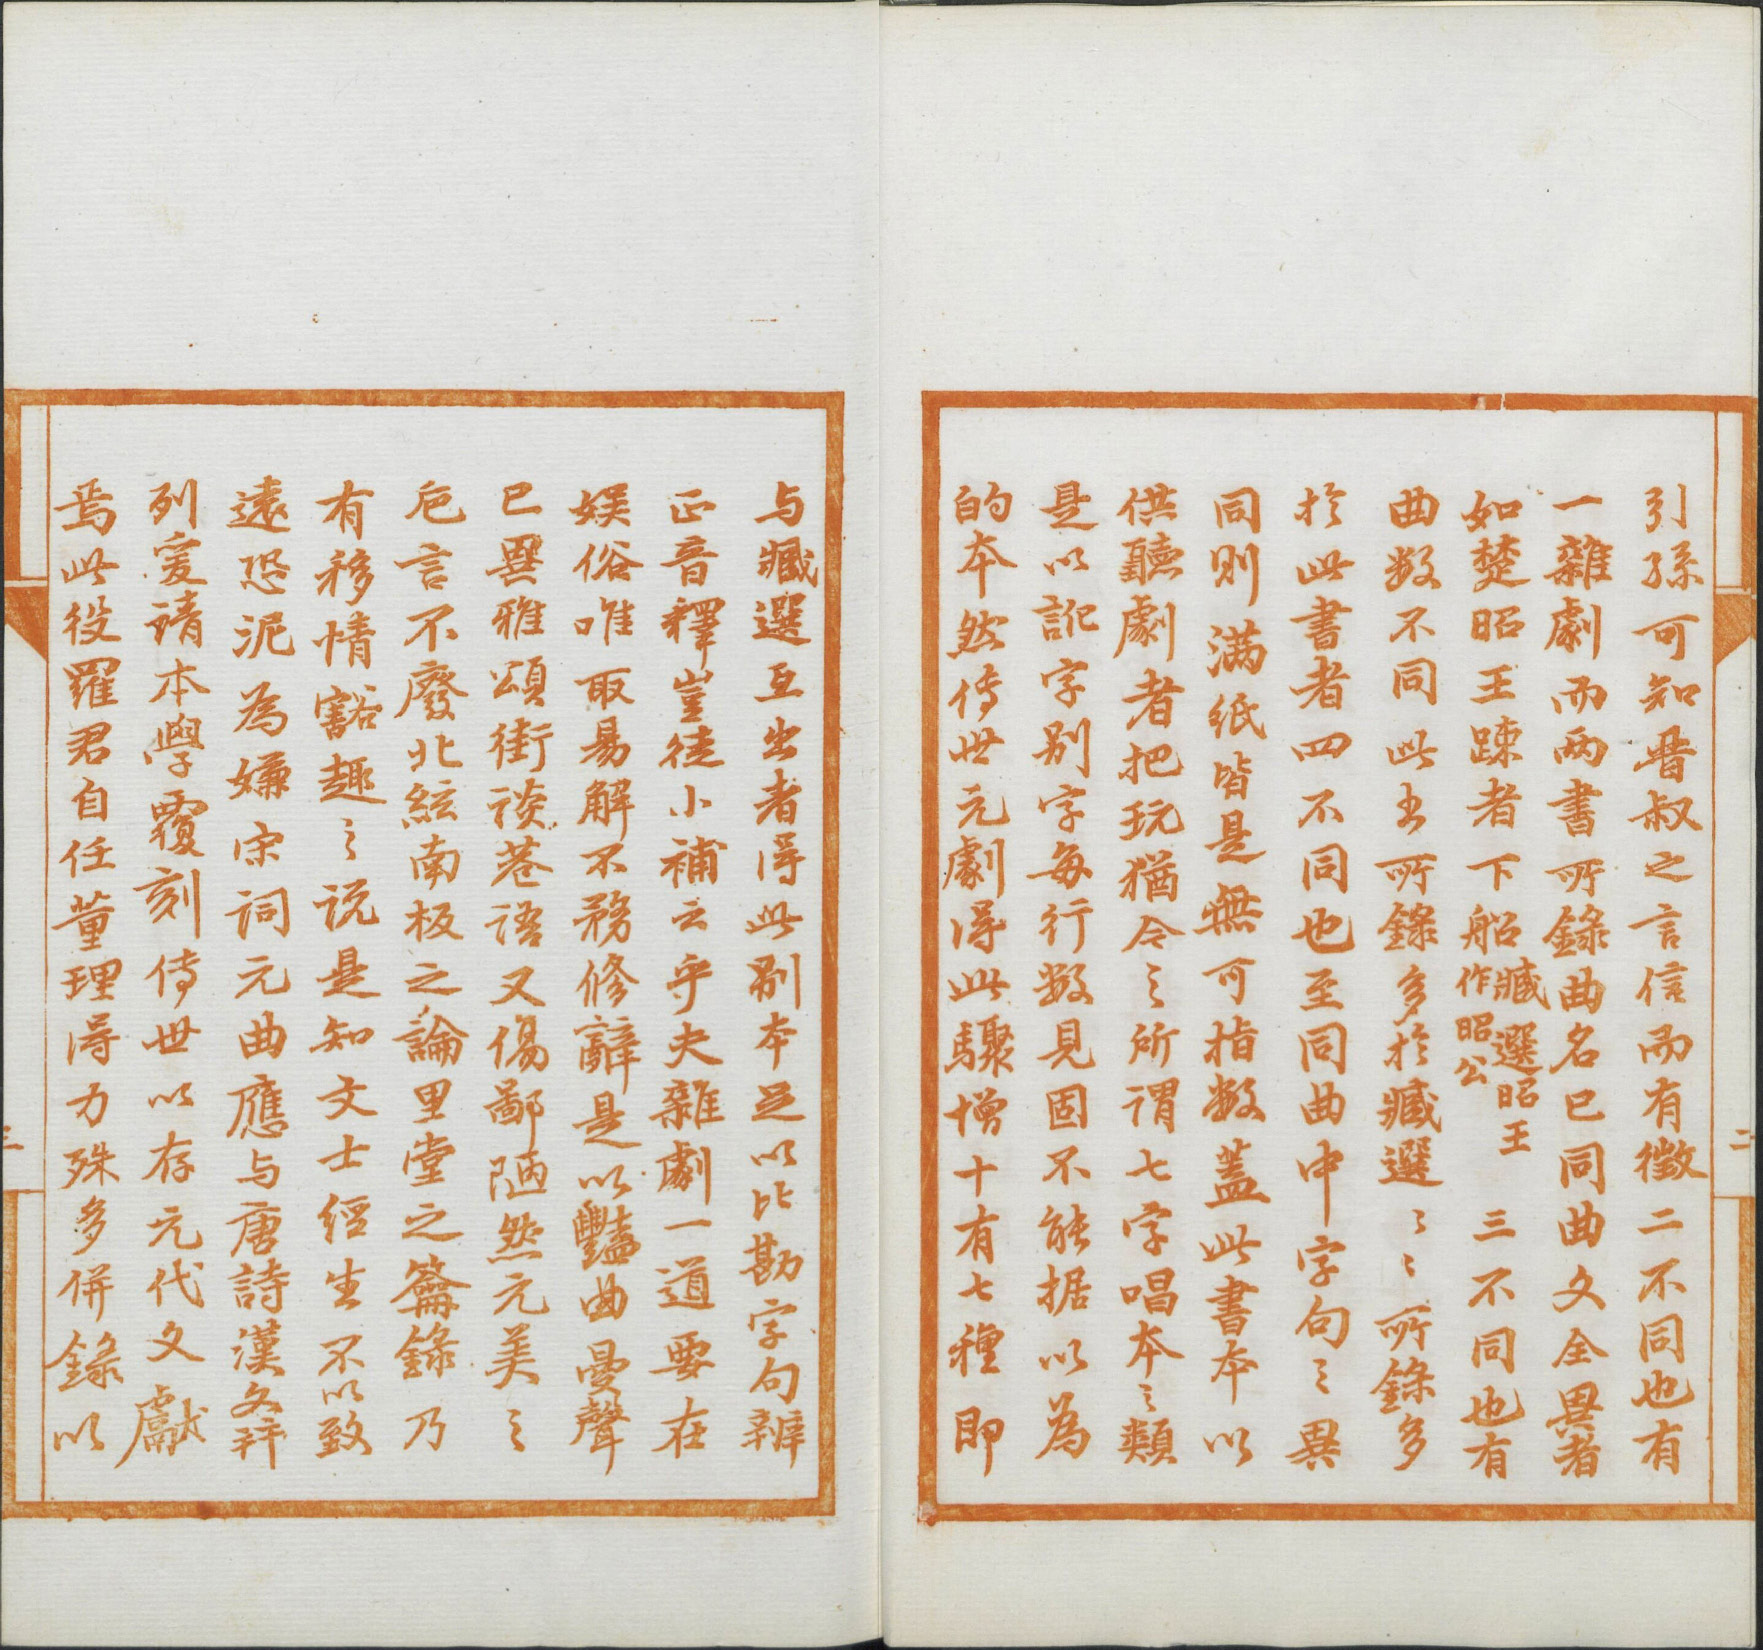 引孫可知晉叔之言信而有徵二不同也有
一雜劇而兩書所錄曲名已同曲文全異者
如楚昭王踈者下船臧選昭王作昭公三不同也有
曲数不同此書所錄多於臧選〻〻所錄多
於此書者四不同也至同曲中字句之異
同則滿紙皆是無可指数蓋此書本以
供聽劇者把玩猶今之所謂七字唱本之類
是以訛字別字每行数見固不能据以為
的本然傳世元劇得此驟增十有七種即
与臧選互出者得此别本足以比勘字句辨
正音釋豈徒小補云乎夫雜劇一道要在
娛俗唯取易解不務修辭是以豔曲曼聲
已異雅頌街談巷語又傷鄙陋然元美之
卮言不廢北絃南板之論里堂之籥錄乃
有移情豁趣之説是知文士經生不以致
遠恐泥為嫌宋詞元曲應与唐詩漢文并
列爰請本學覆刻傳世以存元代文獻
焉此役羅君自任董理得力殊多併錄以
二
三